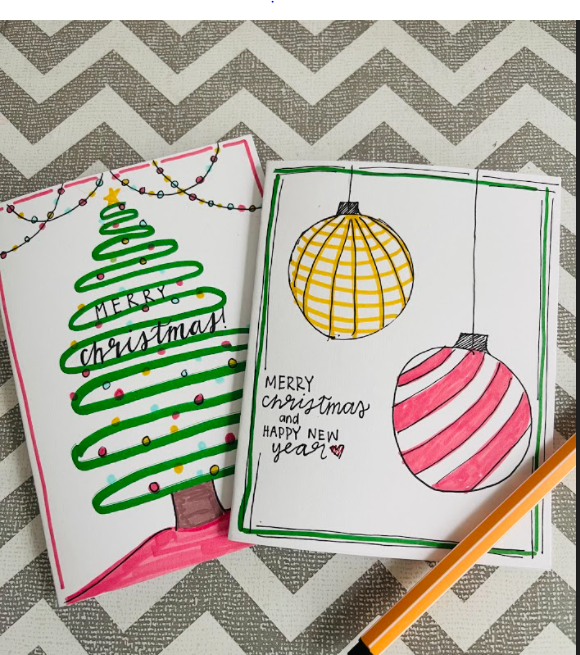 MERRY
christmas!
MERRY
christmas
and
HAPPY NEW
year